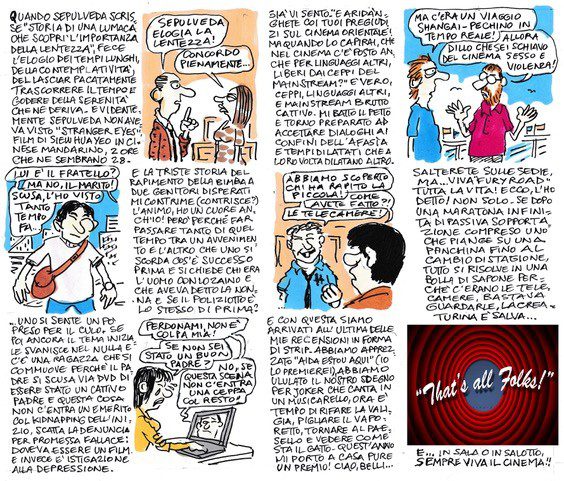 QUANDO SEPULVEDA SCRIS_
SE "STORIA DI UNA LUMACA
CHE SCOPRÌ L'IMPORTANZA
DELLA LENTEZZA", FECE
L'ELOGIO DEI TEMPI LUNGHI,
DELLA CONTEMPLATIVITÀ,
DEL LASCIAR PACATAMENTE
TRASCORRERE IL TEMPO E
GODERE DELLA SERENITÀ
CHE NE DERIVA. EVIDENTE_
MENTE SEPULVEDA NON AVE_
VA VISTO "STRANGER EYES"
FILM DI SIEW HUA YEO IN CI_
NESE MANDARINO, 2 ORE
CHE NE SEMBRANO 28.
SEPULVEDA
ELOGIA LA
LENTEZZA!
CONCORDO
PIENAMENTE...
GIÀ VI SENTO... "E ARIDAN_
GHETE COI TUOI PREGIUDI_
ZI SUL CINEMA ORIENTALE!
MA QUANDO LO CAPIRAI, CHE
NEL CINEMA C'È POSTO AN_
CHE PER LINGUAGGI ALTRI,
LIBERI DAI CEPPI DEL
MAINSTREAM?" È VERO,
CEPPI, LINGUAGGI ALTRI,
E MAINSTREAM BRUTTO
CATTIVO. MI BATTO IL PETTO
E TORNO PREPARATO AD
ACCETTARE DIALOGHI AI
CONFINI DELL'AFASIA
E TEMPI DILATATI CHE A
LORO VOLTA DILATANO ALTRO.
MA C'ERA UN VIAGGIO
SHANGAI-PECHINO IN
TEMPO REALE!
ALLORA
DILLO CHE SEI SCHIAVO
DEL CINEMA SESSO E
VIOLENZA!
LUI È IL FRATELLO?
MA NO, IL MARITO!
SCUSA, L'HO VISTO
TANTO
TEMPO
FA...
E LA TRISTE STORIA DEL
RAPIMENTO DELLA BIMBA A
DUE GENITORI DISPERATI
MI CONTRIME (CONTRISCE?)
L'ANIMO, HO UN CUORE AN_
CH'IO! PERÒ PERCHÉ FAR
PASSARE TANTO DI QUEL
TEMPO TRA UN AVVENIMEN_
TO E L'ALTRO CHE UNO SI
SCORDA COS'È SUCCESSO
PRIMA E SI CHIEDE CHI ERA
L'UOMO COLLO ZAINO E
CHE AVEVA DETTO LA NON_
NA E SE IL POLIZIOTTO È
LO STESSO DI PRIMA?
ABBIAMO SCOPERTO
CHI HA RAPITO LA
PICCOLA!
COME
AVETE FATTO?!
LE TELECAMERE!
SALTERETE SULLE SEDIE,
MA... VIVA "FURY ROAD"
TUTTA LA VITA! ECCO, L'HO
DETTO! NON SOLO. SE DOPO
UNA MARATONA INFINI_
TA DI PASSIVA SOPPORTA
ZIONE COMPRESO UNO
CHE PIANGE SU UNA
PANCHINA FINO AL
CAMBIO DI STAGIONE,
TUTTO SI RISOLVE IN UNA
BOLLA DI SAPONE PER_
CHÉ C'ERANO LE TELE_
CAMERE, BASTAVA
GUARDARLE, LA CREA_
TURINA È SALVA...
...UNO SI SENTE UN PO'
PRESO PER IL CULO. SE
POI ANCORA IL TEMA INIZIA_
LE SVANISCE NEL NULLA E
C'È UNA RAGAZZA CHE SI
COMMUOVE PERCHÉ IL PA_
DRE SI SCUSA VIA DVD DI
ESSERE STATO UN CATTIVO
PADRE E QUESTA COSA
NON C'ENTRA UN EMERITO
COL KIDNAPPING DELL'INI_
ZIO, SCATTA LA DENUNCIA
PER PROMESSA FALLACE:
DOVEVA ESSERE UN FILM
E INVECE È ISTIGAZIONE
ALLA DEPRESSIONE.
PERDONAMI, NON È
COLPA MIA!
SE NON SEI
STATO UN BUON
PADRE?
NO, SE
QUESTA SCENA
NON C'ENTRA
UNA CEPPA
COL RESTO!
E CON QUESTA SIAMO
ARRIVATI ALL'ULTIMA DELLE
MIE RECENSIONI IN FORMA
DI STRIP. ABBIAMO APPREZ_
ZATO "AIDA ESTOU AQUI" (IO
LO PREMIEREI), ABBIAMO
ULULATO IL NOSTRO SDEGNO
PER JOKER CHE CANTA IN
UN MUSICARELLO, ORA È
TEMPO DI RIFARE LA VALI_
GIA, PIGLIARE IL VAPO_
RETTO, TORNARE AL PAE_
SELLO E VEDERE COME
STA IL GATTO. QUEST'ANNO
MI PORTO A CASA PURE
UN PREMIO! CIAO, BELLI...
"That's all Folks!"
E... IN SALA O IN SALOTTO,
SEMPRE VIVA IL CINEMA!!